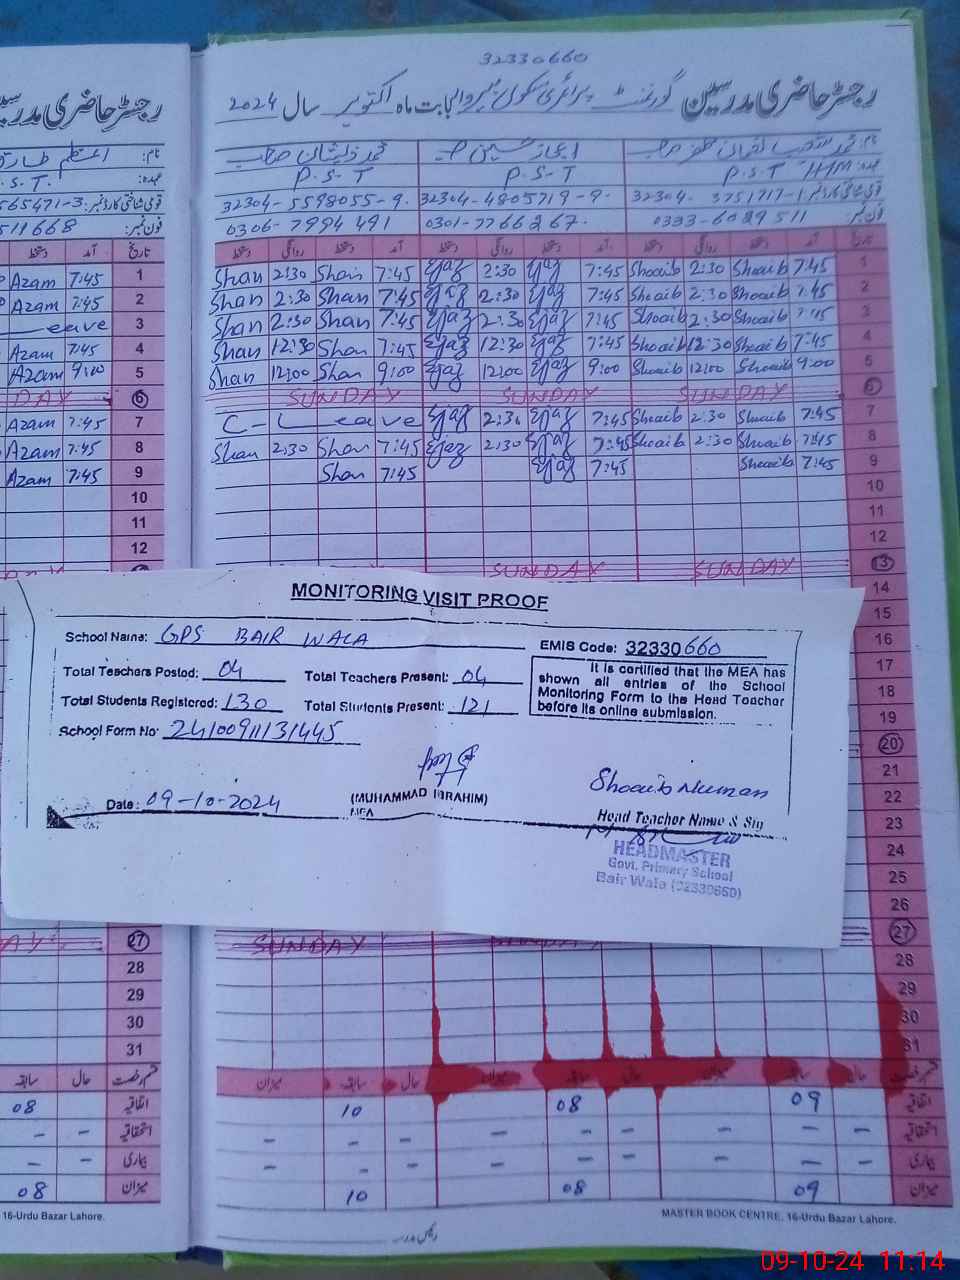 32330660
رجسٹر حاضری مدرسین گورنمنٹ پرائمری سکول بیر والا بابت ماہ اکتوبر سال 2024
رجسٹر حاضری مدرسین
نام: اعظم طارق
عہدہ: P.S.T.
قومی شناختی کارڈ نمبر: 565471-3
فون نمبر: 511668
محمد ذیشان صاحب اعجاز حسین صاحب
P.S.T P.S-T P.S.T
32304-5598055-9. 32304-4805719-9. 32304-3751717-1
0306-7994491 0301-7766267. 0333-6029511
تاریخ آمد دستخط روانگی دستخط
Azam 7:45 1
Azam 7:45 2
Leave 3
Azam 7:45 4
Azam 9:00 5
DAY 6
Azam 7:45 7
Azam 7:45 8
Azam 7:45 9
10
11
12
Shan 2:30 Shan 7:45 Ejaz 2:30 Ejaz 7:45 Shoaib 2:30 Shoaib 7:45 1
Shan 2:30 Shan 7:45 Ejaz 2:30 Ejaz 7:45 Shoaib 2:30 Shoaib 7:45 2
Shan 2:30 Shan 7:45 Ejaz 2:30 Ejaz 7:45 Shoaib 2:30 Shoaib 7:45 3
Shan 12:30 Shan 7:45 Ejaz 12:30 Ejaz 7:45 Shoaib 12:30 Shoaib 7:45 4
Shan 12:00 Shan 9:00 Ejaz 12:00 Ejaz 9:00 Shoaib 12:00 Shoaib 9:00 5
SUNDAY SUNDAY SUNDAY 6
C-Leave Ejaz 2:30 Ejaz 7:45 Shoaib 2:30 Shoaib 7:45 7
Shan 2:30 Shan 7:45 Ejaz 2:30 Ejaz 7:45 Shoaib 2:30 Shoaib 7:45 8
Shan 7:45 Ejaz 7:45 Shoaib 7:45 9
10
11
12
SUNDAY SUNDAY 13
14
15
16
17
18
19
20
21
22
23
24
25
26
MONITORING VISIT PROOF
School Name: GPS BAIR WALA
EMIS Code: 32330660
Total Teachers Posted: 04 Total Teachers Present: 04
Total Students Registered: 130 Total Students Present: 121
School Form No: 24100911131445
It is certified that the MEA has
shown all entries of the School
Monitoring Form to the Head Teacher
before its online submission.
Date: 09-10-2024
(MUHAMMAD IBRAHIM)
MEA
Shoaib Numan
Head Teacher Name & Sig
HEADMASTER
Govt. Primary School
Bair Wala (32330660)
27 SUNDAY SUNDAY 27
28 28
29 29
30 30
31 31
قسم رخصت حال سابقہ میزان حال سابقہ میزان حال سابقہ میزان
08 اتفاقیہ 10 08 09 اتفاقیہ
- - استحقاقیہ - - - - - - - - استحقاقیہ
- - بیماری - - - - - - - - بیماری
08 میزان 10 08 09 میزان
16-Urdu Bazar Lahore.
MASTER BOOK CENTRE, 16-Urdu Bazar Lahore.
رئیس مدرسہ
09-10-24 11:14